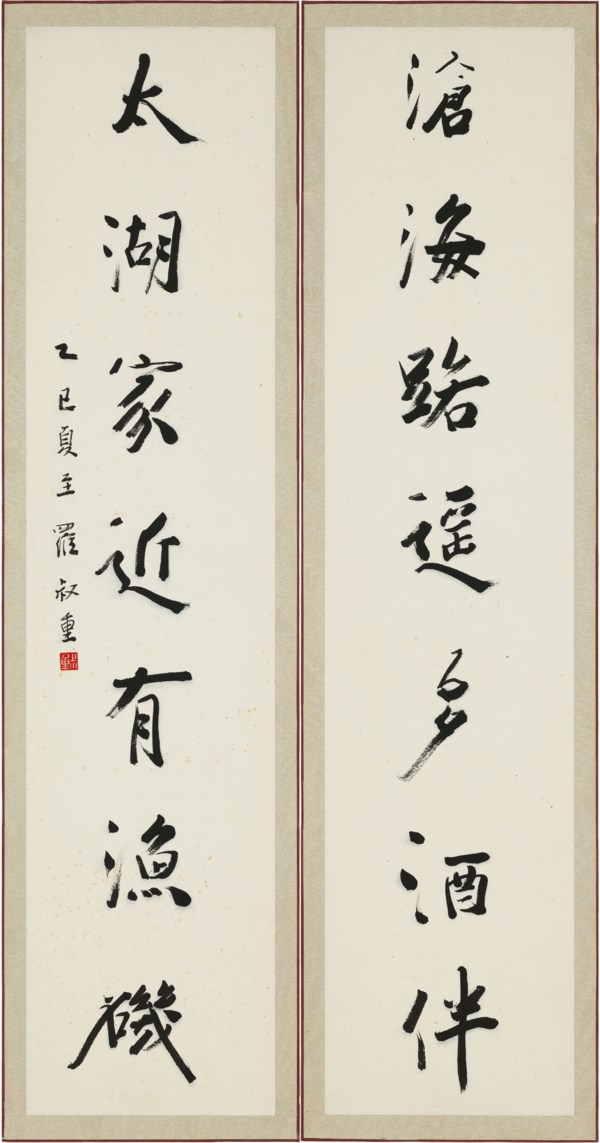 滄海路遥多酒伴
太湖家近有漁磯
乙巳夏至羅叔重
叔重